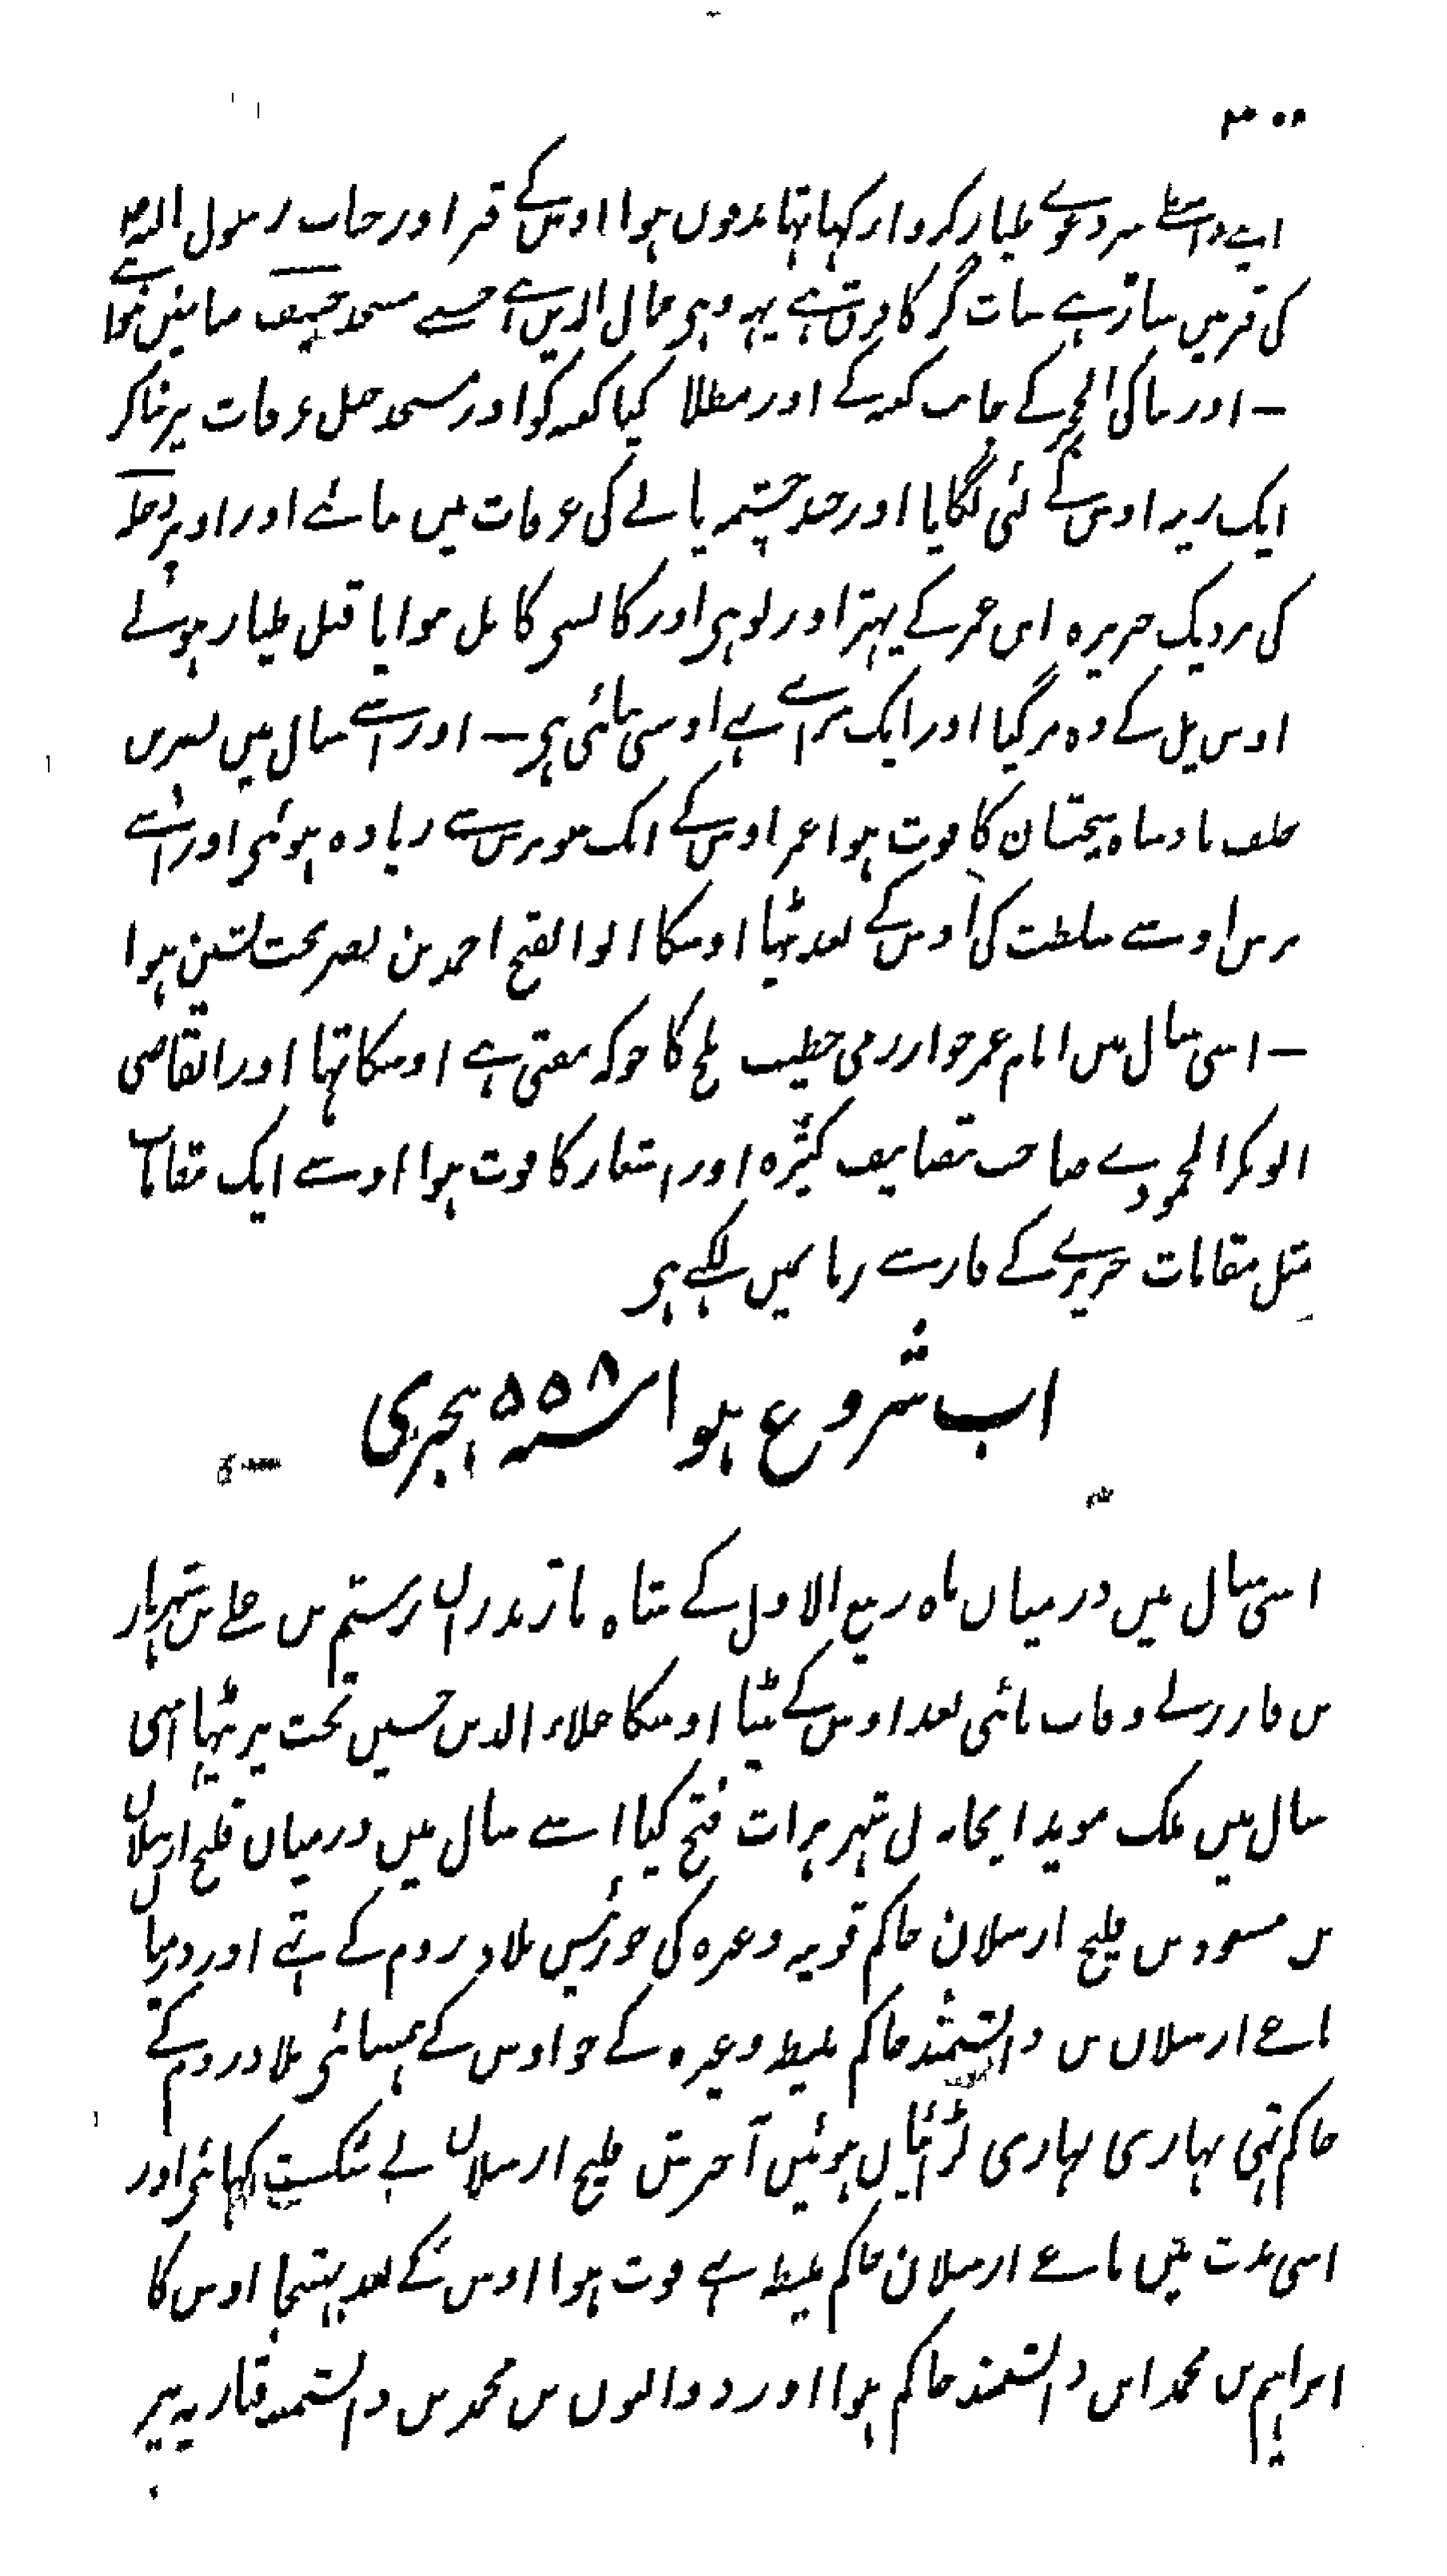 ۳۰۰
اپنے واسطے سردوے طیار کروا رکہا تہا مدفون ہوا اوس کے قبر اور جناب رسول اللہ صلعم
کی قبر میں ساڑہے سات گز کا فرق ہے یہہ وہی جمال الدین ہے جسنے مسجد خیف بنائی
– اور بنا کی الحجر کے جانب کعبہ کے اور مطلا کیا کعبہ کو اور مسجد جبل عرفات پر بنا کر
ایک زینہ اوس کے لئی لگایا اور چند چشمہ پانے کی عرفات میں بنائے اور اوپر دجلہ
کی نزدیک جزیرہ ابن عمر کے پتہر اور لوہی اور کانسی کا پل بنوایا قبل طیار ہونے
اوس پل کے وہ مر گیا اور ایک سرائے بہی اوسی بنائی ہی – اور اسے سال میں نصر بن
خلف بادشاہ سجستان کا فوت ہوا عمر اوس کے ایک سو برس سے زیادہ ہوئی اور اسے
برس اوسے سلطنت کی اوس کے بعد بیٹا اوسکا ابو الفتح احمد بن نصر تخت نشین ہوا
– اسی سال میں امام عمر خوارزمی خطیب بلخ کا جو کہ مفتی بہی اوسکا تہا اور القاضی
ابو بکر المحمودے صاحب تصانیف کثیرہ اور اشعار کا فوت ہوا اوسے ایک مقامات
مثل مقامات حریرے کے فارسے زبا نمیں لکہے ہی
اب شروع ہوا سنہ ۵۵۸ ہجری
اسی سال میں درمیان ماہ ربیع الاول کے شاہ مازندران رستم بن علے بن شہریار
بن قارن نے وفات پائی بعد اوس کے بیٹا اوسکا علاء الدین حسین تخت پر بیٹہا اسی
سال میں ملک موید ایجانہ نی شہر ہرات فتح کیا اسے سال میں درمیان قلیج ارسلان
بن مسعود بن قلیج ارسلان حاکم قونیہ وغیرہ کی جو رئیس بلاد روم کے تہے اور درمیان
باغے ارسلان بن دانشمند حاکم ملیطہ وغیرہ کے جو اوس کے ہمسائی بلاد روم کے
حاکم تہی بہاری بہاری لڑائیاں ہوئیں آخرش قلیج ارسلان نے شکست کہائی اور
اسی مدت میں باغے ارسلان حاکم ملیطہ بہے فوت ہوا اوس کے بعد بہتیجا اوس کا
ابراہیم بن محمد ابن دانشمند حاکم ہوا اور ذوالنون بن محمد بن دانشمند قیساریہ پر